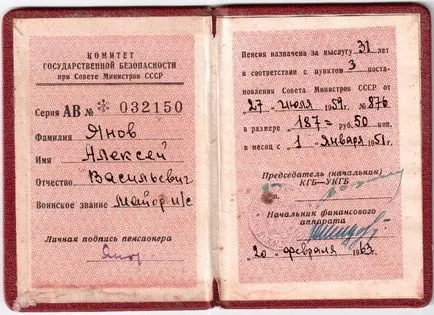 КОМИТЕТ
ГОСУДАРСТВЕННОЙ БЕЗОПАСНОСТИ
при Совете Министров СССР
Серия АВ № * 032150
Фамилия Янов
Имя Алексей
Отчество Васильевич
Воинское звание Майор и/с
Личная подпись пенсионера
Янов
Пенсия назначена за выслугу 31 лет
в соответствии с пунктом 3 поста-
новления Совета Министров СССР от
27 июля 1959. № 876
в размере 187= руб. 50 коп.
в месяц с 1 января 1961г.
Председатель (начальник)
КГБ—УКГБ
Начальник финансового
аппарата
20 февраля 1963г.